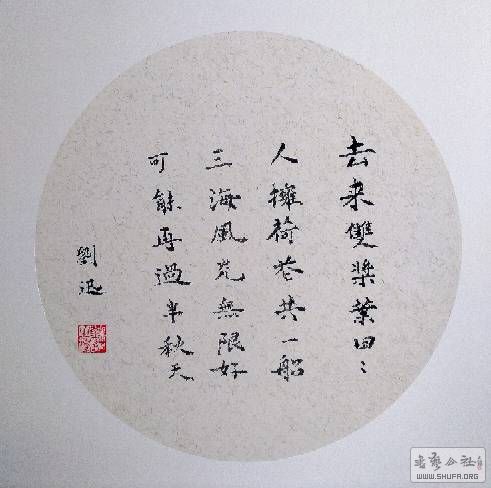 去来雙槳葉田〻
人擁荷花共一船
三海風光無限好
可能再過半秋天
劉迅
书艺公社
WWW.SHUFA.ORG